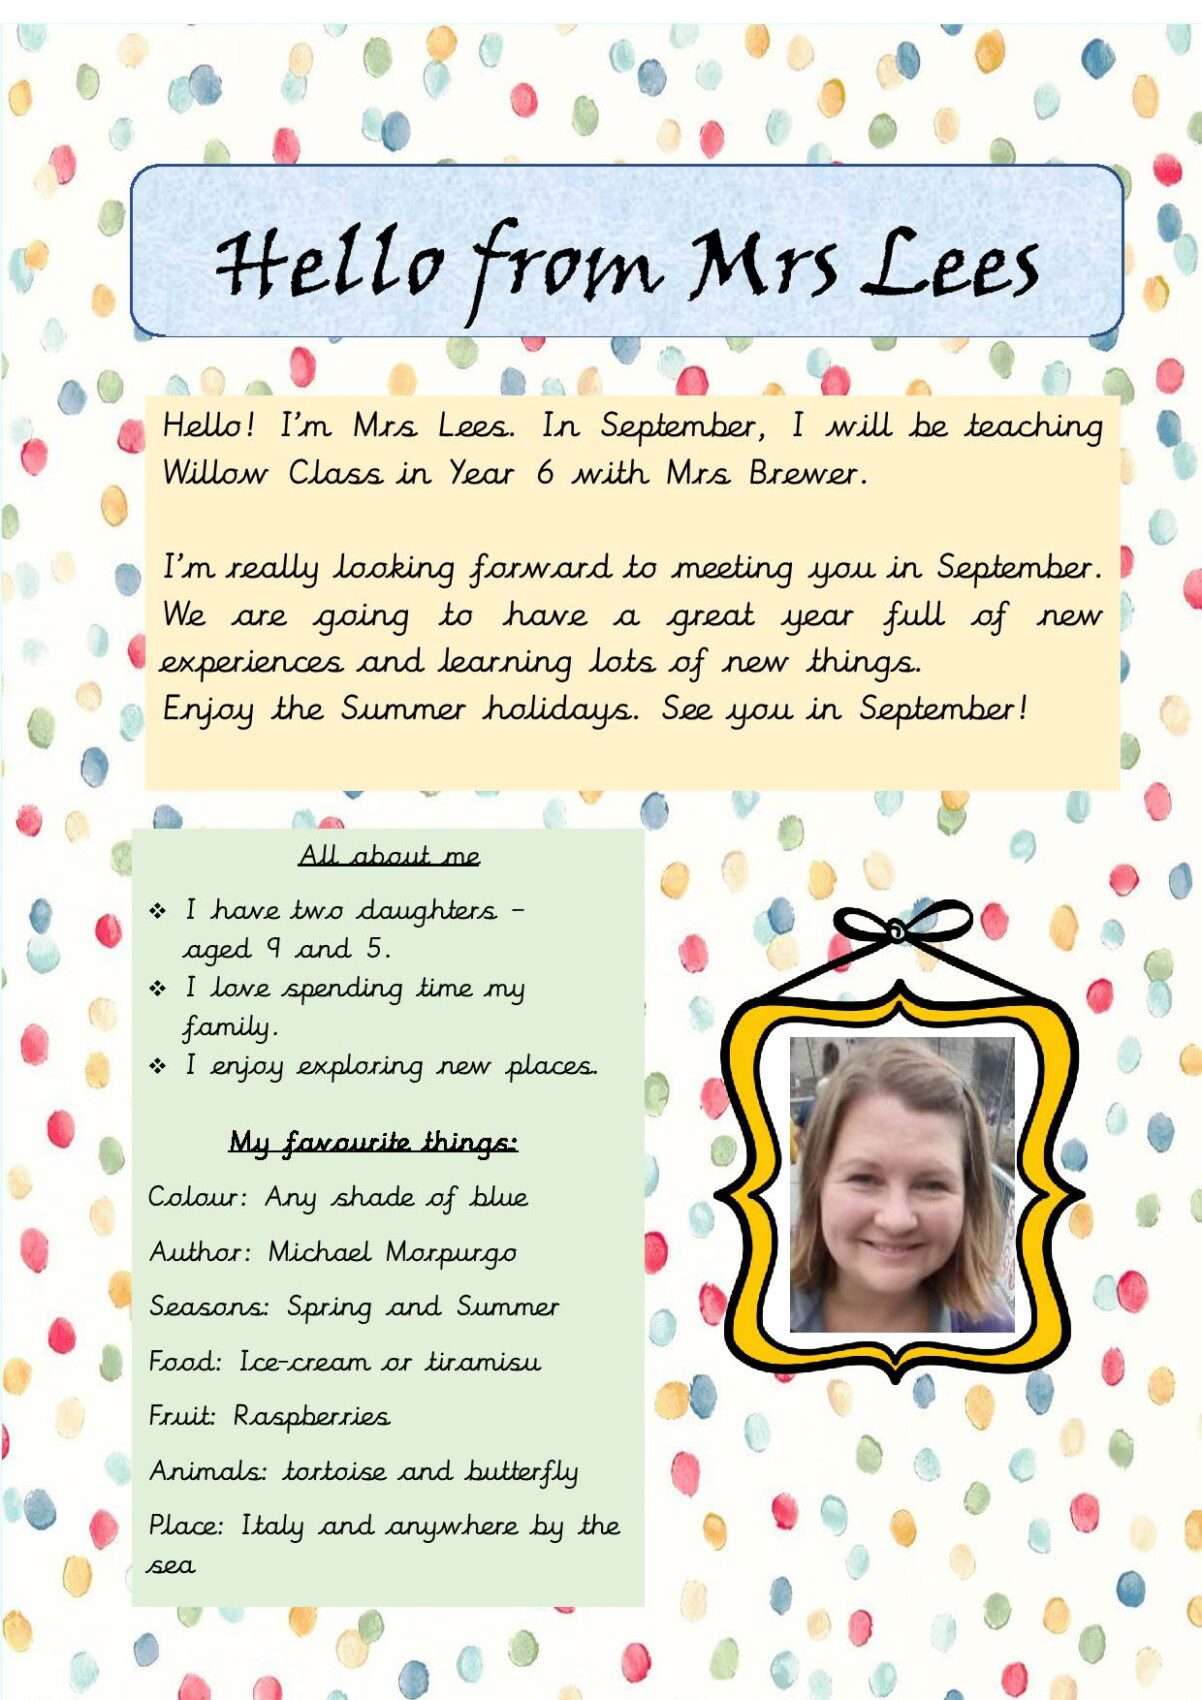 Hello from Mrs Lees
Hello! I'm Mrs Lees. In September, I will be teaching
Willow Class in Year 6 with Mrs Brewer.
I'm really looking forward to meeting you in September.
We are going to have a great year full of new
experiences and learning lots of new things.
Enjoy the Summer holidays. See you in September!
All about me
❖ I have two daughters –
aged 9 and 5.
❖ I love spending time my
family.
❖ I enjoy exploring new places.
My favourite things:
Colour: Any shade of blue
Author: Michael Morpurgo
Seasons: Spring and Summer
Food: Ice-cream or tiramisu
Fruit: Raspberries
Animals: tortoise and butterfly
Place: Italy and anywhere by the
sea